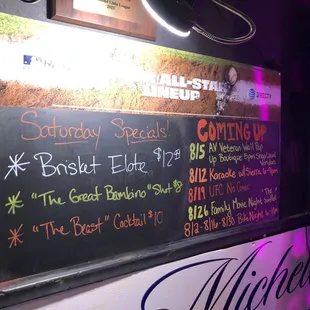 ALL-STAR
LINEUP
Saturday Specials!
* Brisket Elote $12
* "The Great Bambino" Shot $8
* "The Beast" Cocktail $10
COMING UP
8/5 AV Veteran Wall Pop
Up Boutique 8pm
8/12 Karaoke w/ Sierra 6-9pm
8/19 UFC No Cover
8/26 Family Movie Night "The Sandlot"
8/2-8/16-8/30 Bike Night
Michel